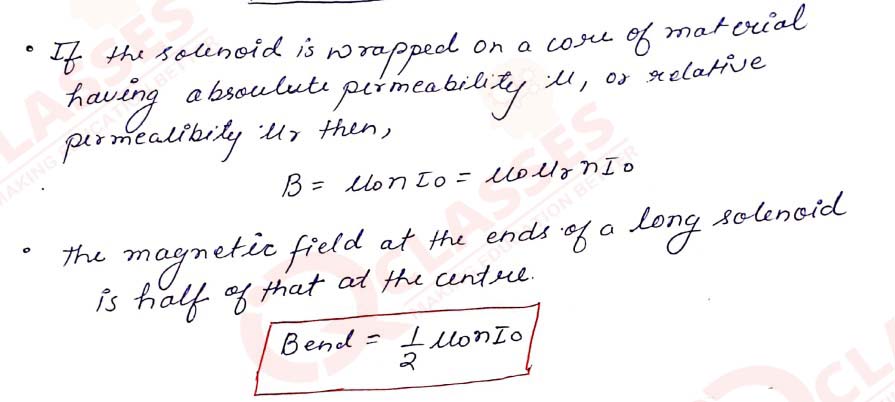 • If the solenoid is wrapped on a core of material
having absoulute permeability μ, or relative
permealibity μr then,
B = μ0nI0 = μ0μrnI0
• the magnetic field at the ends of a long solenoid
is half of that at the centre.
Bend = 1/2 μ0nI0